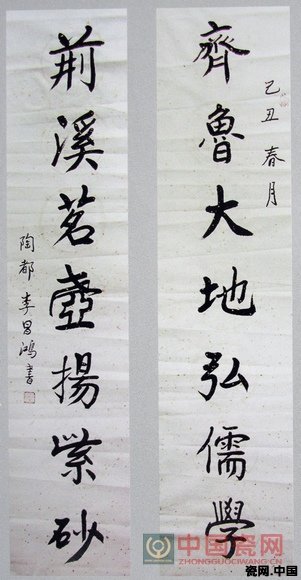 己丑春月
齊魯大地弘儒學
荆溪茗壺揚紫砂
陶都李昌鴻書
中国瓷网
ZHONGGUOCIWANG.COM
瓷网.中国